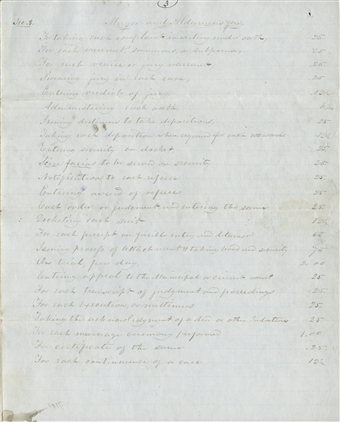 3
Sec. 3. Mayor and Aldermans fees
For taking each complaint in writing under oath 25
For each warrant summons or subpoena 25
For each venire or jury warrant 25
Swearing jury in each case 25
Entering verdict of jury 12½
Administering each oath 6¼
Issuing dedimus to take depositions 25
Taking each deposition when required for each
Entering security on docket 25
Scire facias to be served on security 25
Notification to each referee 25
Entering award of referees 25
Each order or judgment and entering the same 25
Docketing each suit 12½
For each precept in forcible entry and detainer
Issuing process of attachment & taking bond and security 75
On trial per day 2.00
Entering appeal to the Municipal or circuit court 25
For each transcript of judgment and proceedings 25
For each execution or mittimus 25
Taking the acknowledgment of a deed or other 25
For each marriage ceremony performed 1.00
For certificate of the same 25
For each continuance of a case 12½